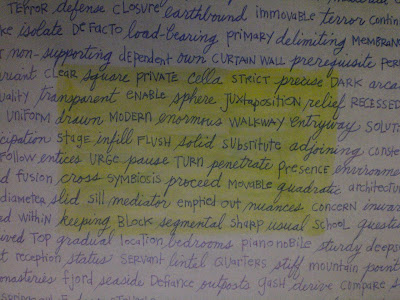 TERROR defense CLOSURE earthbound immovable terror
isolate DE FACTO load-bearing PRIMARY delimiting MEMBRANE
non-supporting dependent own CURTAIN WALL prerequisite
CLEAR square PRIVATE cella STRICT precise DARK
transparent ENABLE sphere JUXTAPOSITION relief RECESSED
UNIFORM drawn MODERN enormous WALKWAY entryway
STAGE infill FLUSH solid SUBSTITUTE adjoining
Follow entices URGE pause TURN penetrate PRESENCE
fusion CROSS SYMBIOSIS proceed MOVABLE quadratic
diameter slid sill mediator emptied out nuances CONCERN
within keeping BLOCK segmental SHARP usual SCHOOL
TOP gradual location, bedrooms piano nobile sturdy
reception STATUS SERVANT lintel QUARTERS stiff mountain
fjord seaside Defiance outposts GASH derive COMPARE